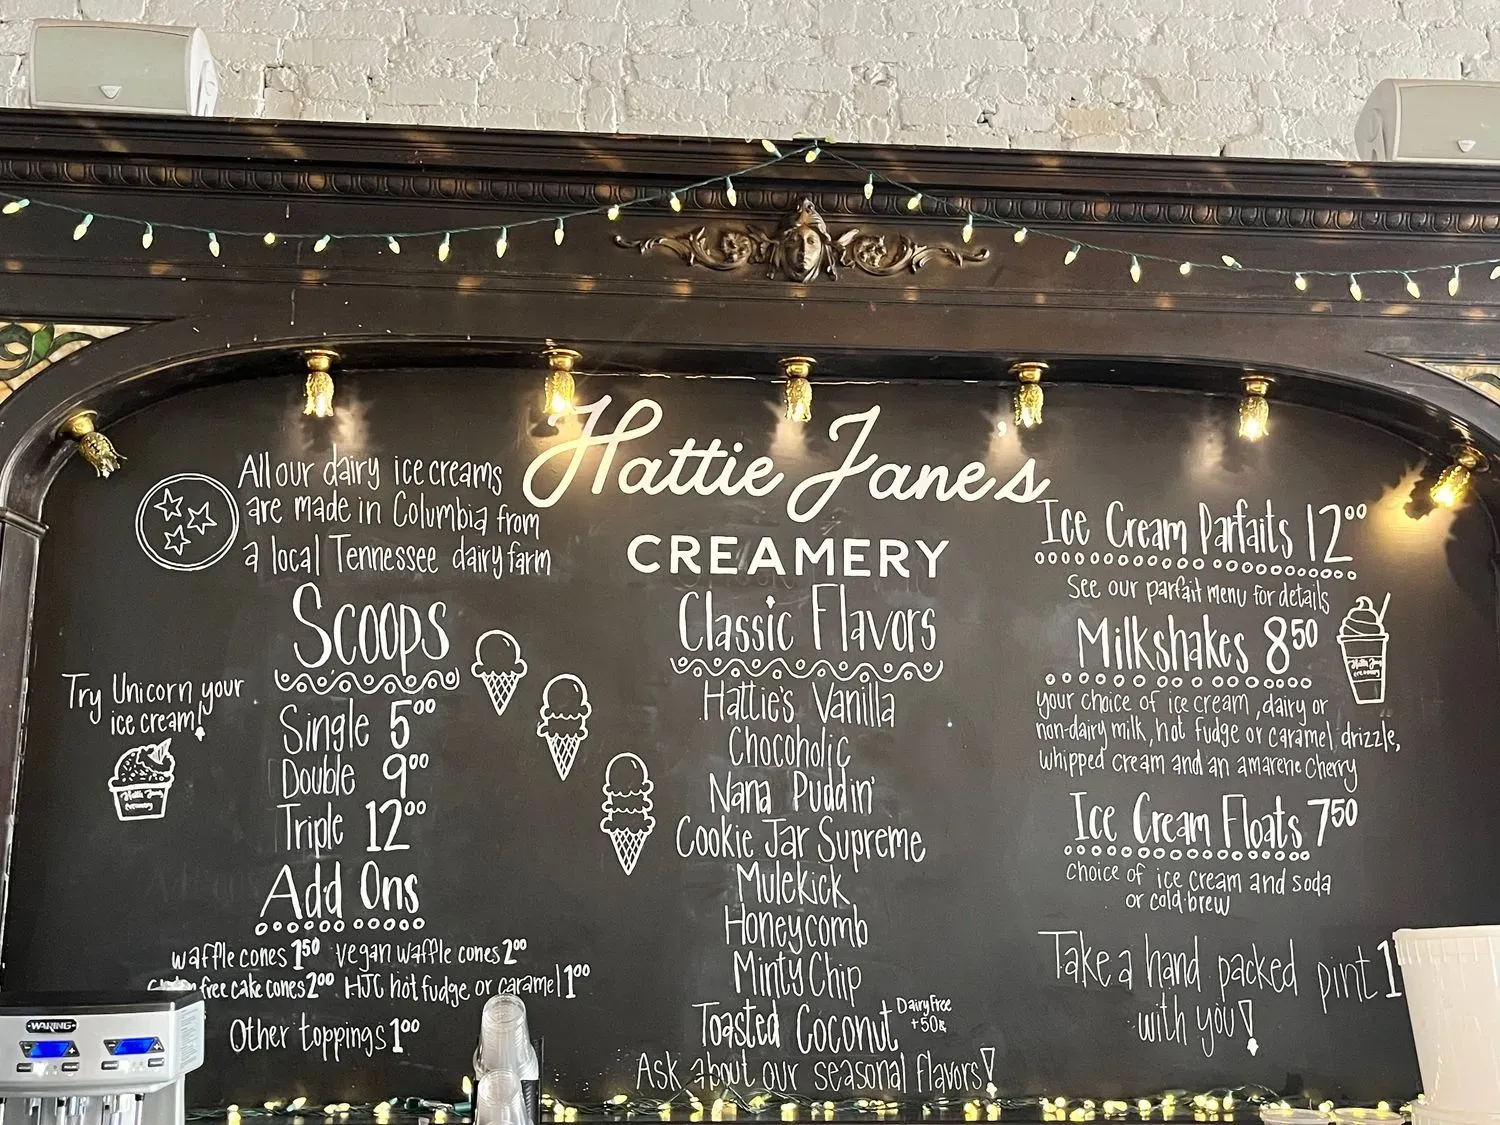 Hattie Jane's
CREAMERY
All our dairy ice creams
are made in Columbia from
a local Tennessee dairy farm
Scoops
Try Unicorn your
ice cream!
Hattie Jane's
Creamery
Single 5⁰⁰
Double 9⁰⁰
Triple 12⁰⁰
Add Ons
waffle cones 1⁵⁰ vegan waffle cones 2⁰⁰
free cake cones 2⁰⁰ HJC hot fudge or caramel 1⁰⁰
Other toppings 1⁰⁰
WARING
Classic Flavors
Hattie's Vanilla
Chocoholic
Nana Puddin'
Cookie Jar Supreme
Mulekick
Honeycomb
Minty Chip
Toasted Coconut Dairy Free
+50¢
Ask about our seasonal flavors!
Ice Cream Parfaits 12⁰⁰
See our parfait menu for details
Milkshakes 8⁵⁰
your choice of ice cream, dairy or
non-dairy milk, hot fudge or caramel drizzle,
whipped cream and an amarene cherry
Ice Cream Floats 7⁵⁰
choice of ice cream and soda
or cold brew
Take a hand packed pint 1
with you!